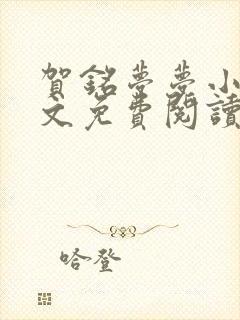 賀銘夢夢小
文免費閱讀
哈登